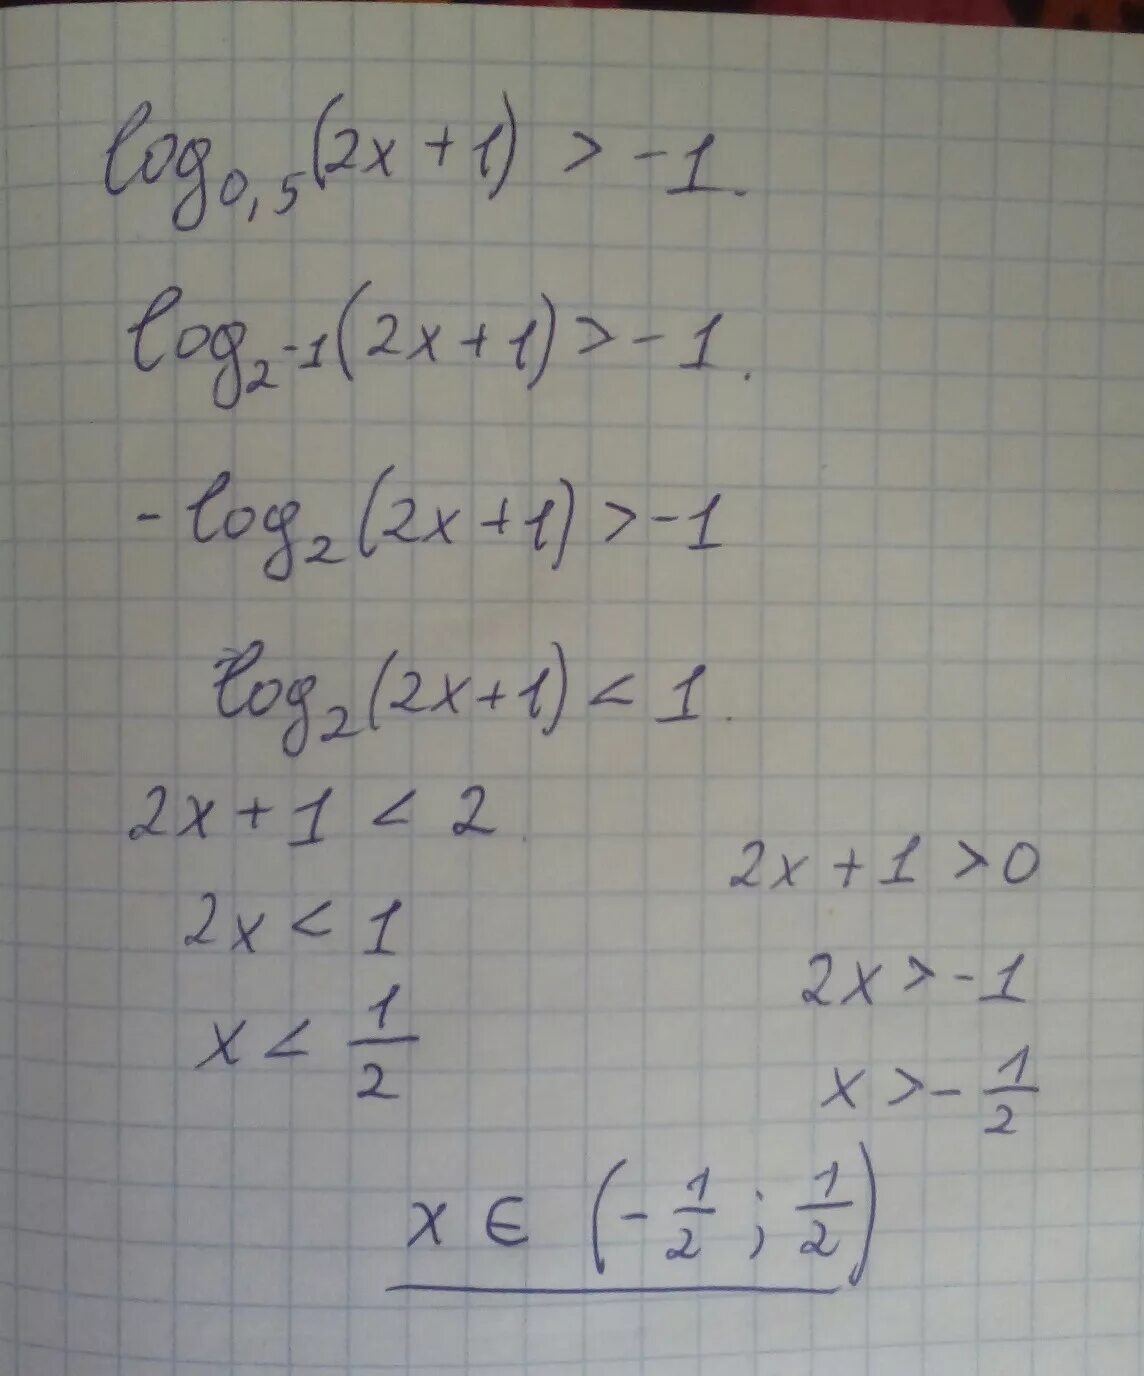 log₀,₅(2x + 1) > -1.
log₂₋₁(2x + 1) > -1.
- log₂(2x + 1) > -1
log₂(2x + 1) < 1.
2x + 1 < 2.
2x < 1
x < 1/2
2x + 1 > 0
2x > -1
x > - 1/2
x ∈ (- 1/2 ; 1/2)